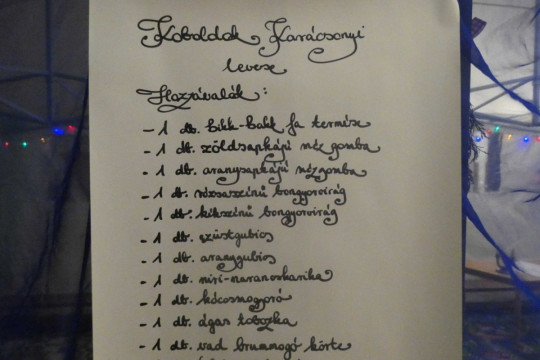 Koboldok Karácsonyi
levese
Hozzávalók:
- 1 db. bikk-bakk fa termése
- 1 db. zöldsapkájú méz gomba
- 1 db. aranysapkájú méz gomba
- 1 db. rózsaszínű bongyorvirág
- 1 db. kékszínű bongyorvirág
- 1 db. ezüstgubics
- 1 db. aranygubics
- 1 db. miri-narancskarika
- 1 db. kócosmogyoró
- 1 db. ágas tobozka
- 1 db. vad brummogó körte